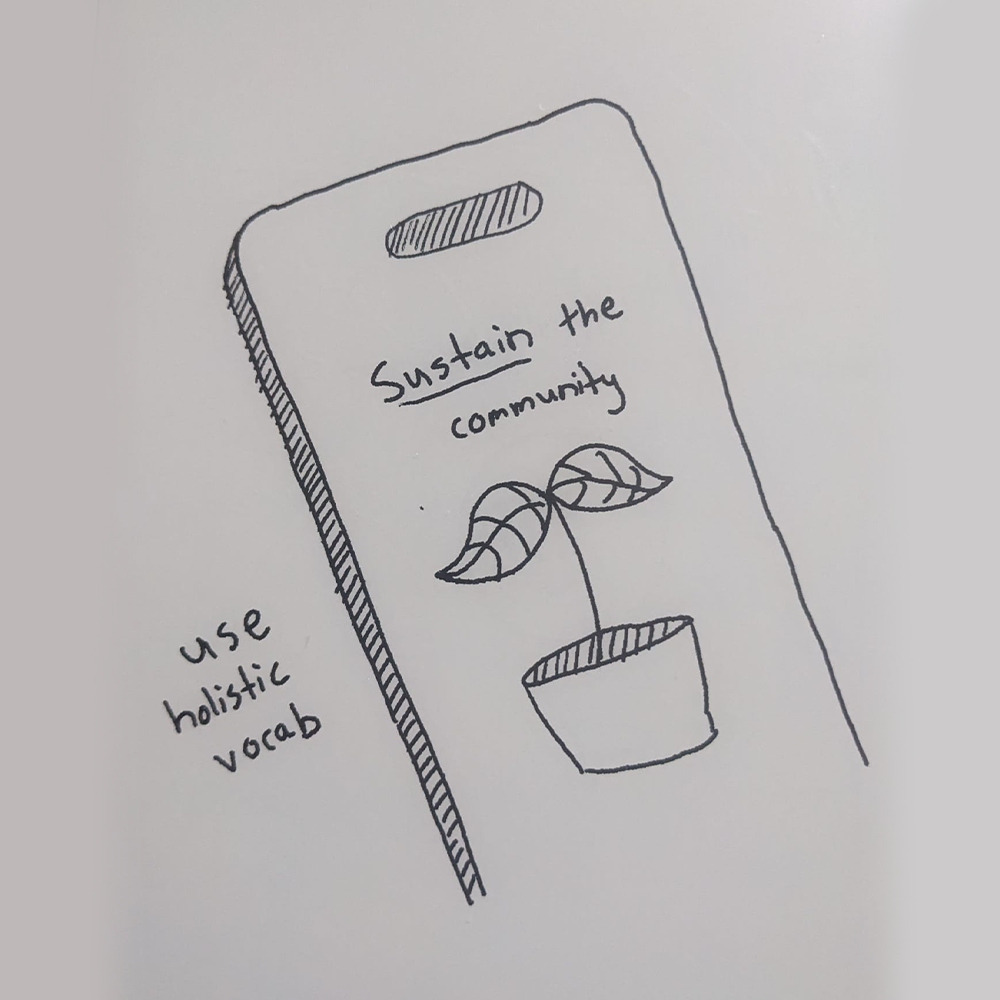 Sustain the
community
use
holistic
vocab